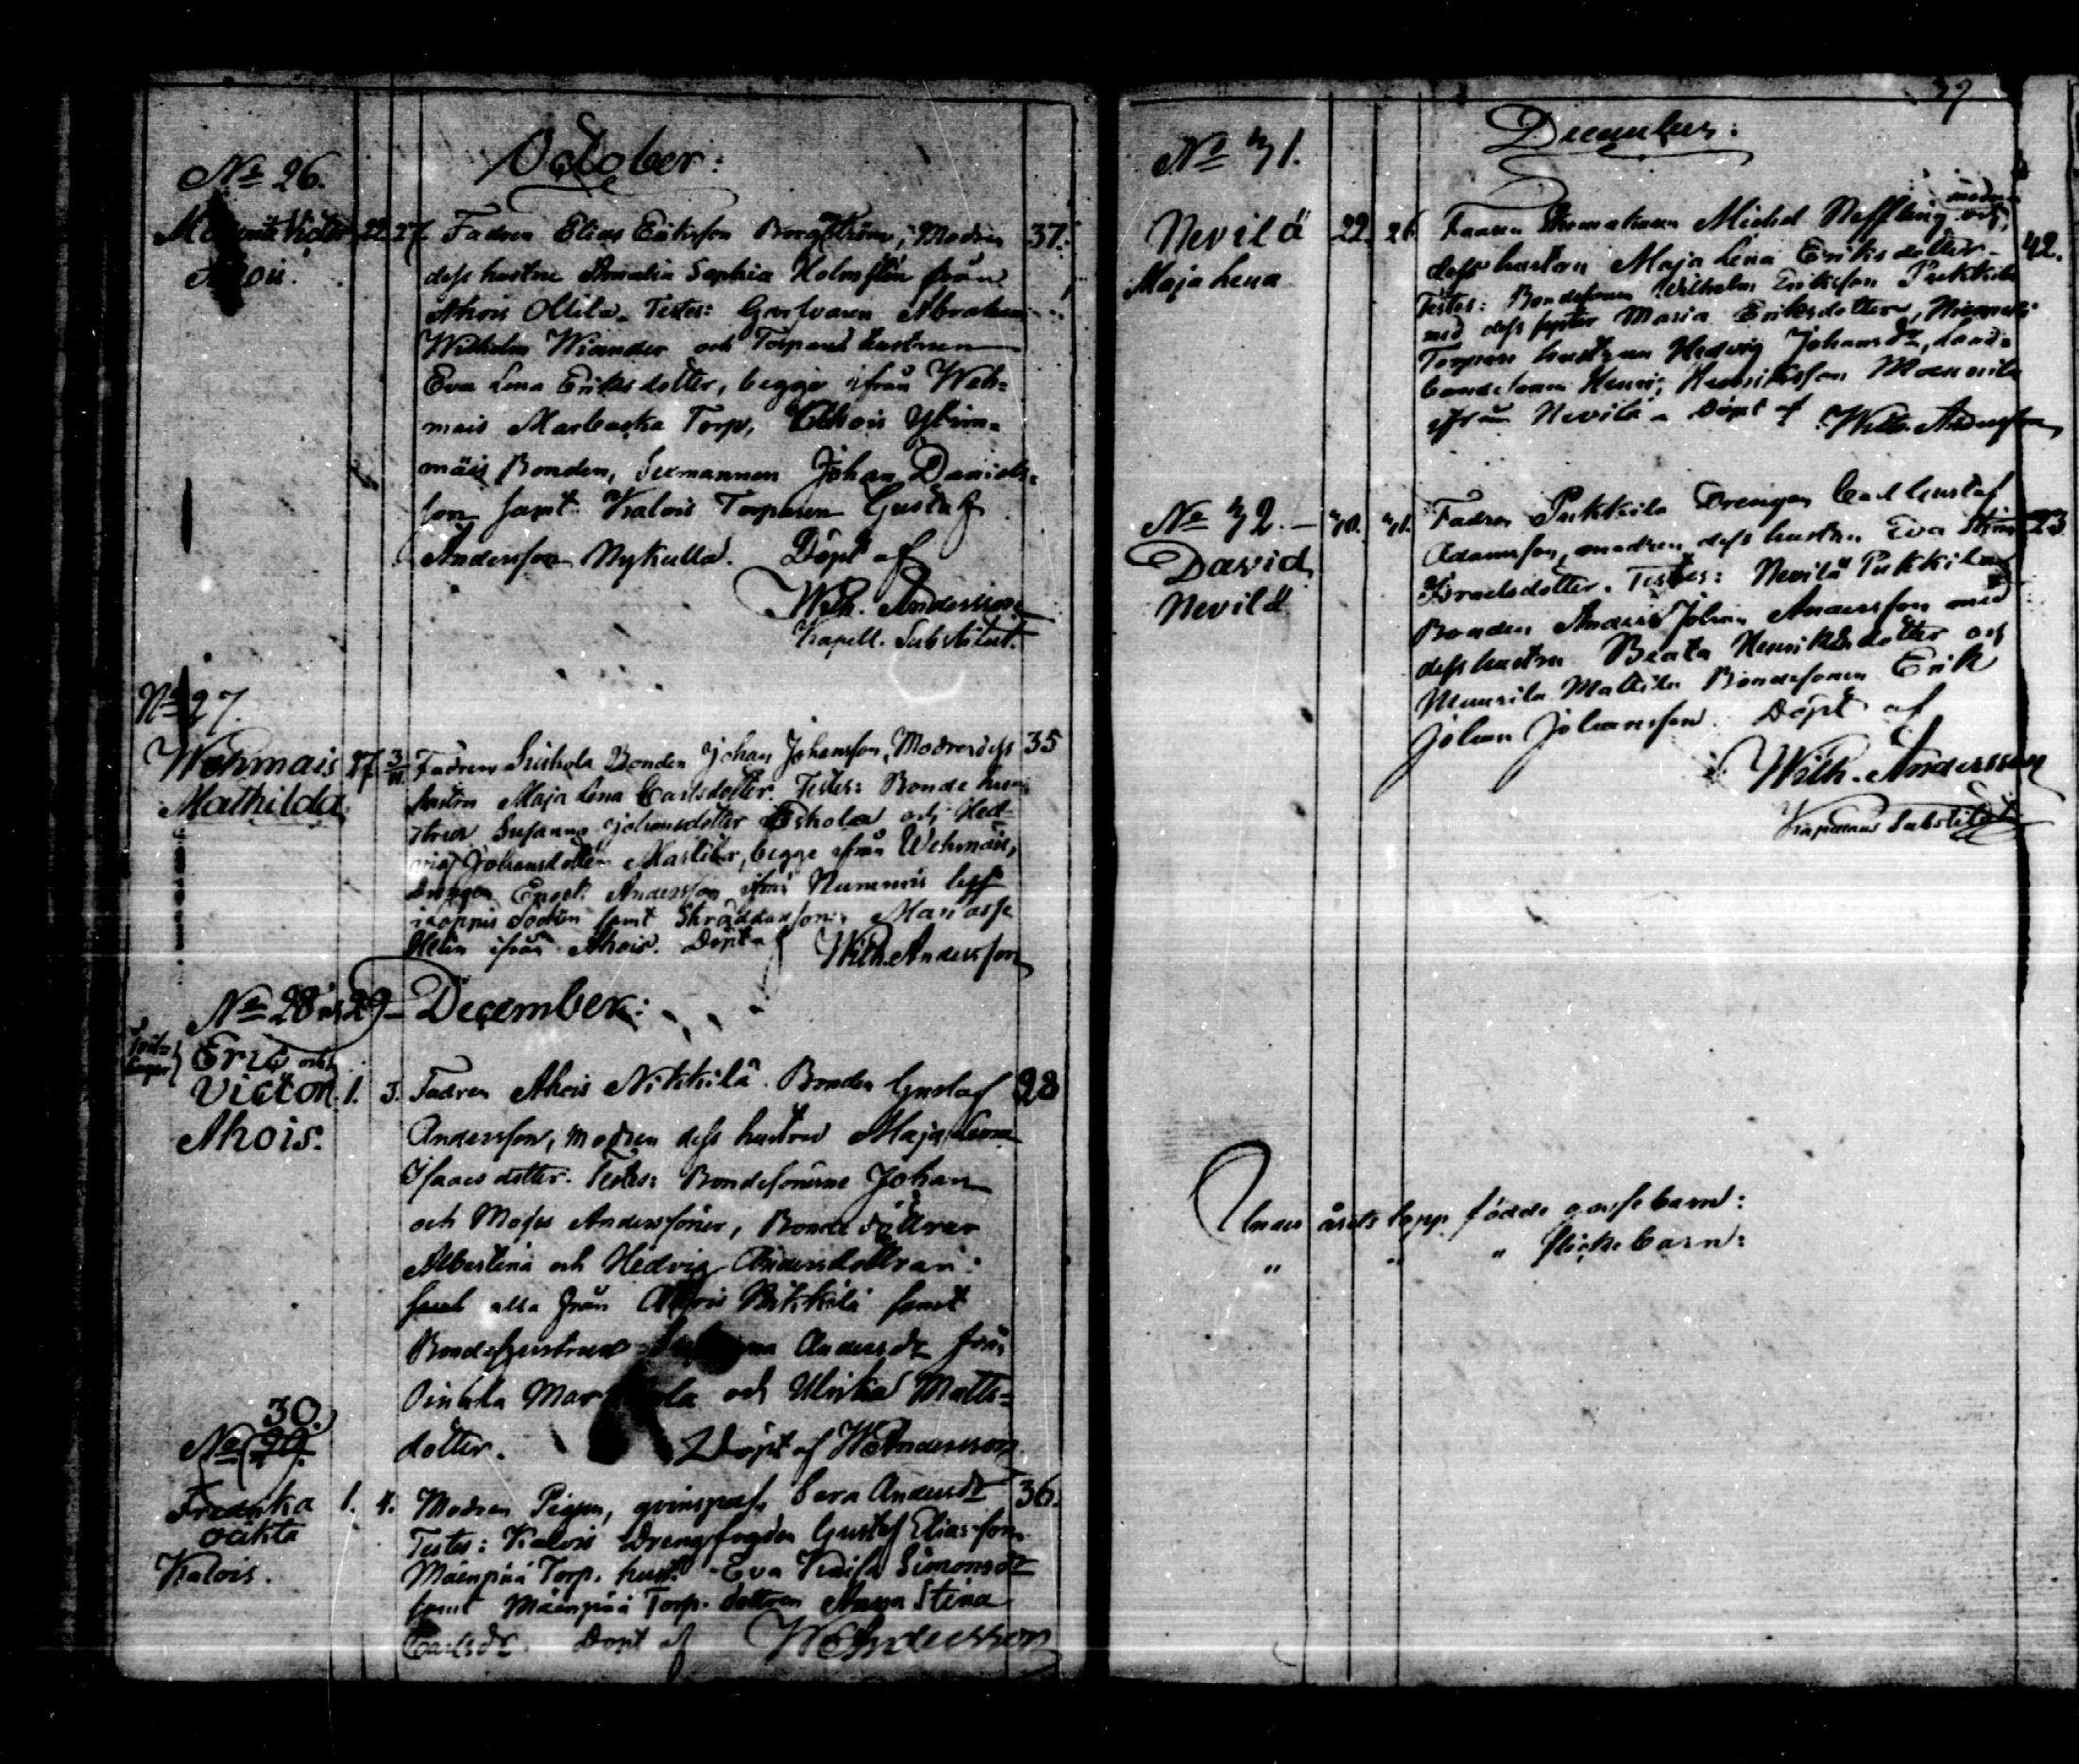 October:
No 26.
22. 27. Fadren Elias Eriksson Borgström, Modren 37.
dess hustru Amalia Sophia Holmstén från
Ahois Ollila. Testes: Garfvaren Abraham
Wilhelm Wiander och Torpare hustrun
Eva Lena Eriksdotter, begge ifrån Weh-
mais Torp, Ahois Yli
mäis Bonden, Sexmannen Johan Daniels-
son samt Kalois Torparen Gustaf
Andersson Nykulla. Döpt af
Wilh. Andersson
Kapell. Substitut.
No 27.
Wehmais
Mathilda.
27. 3/11. Fadren Bonden Johan Johansson, Modren dess 35
hustru Maja Lena Carlsdotter. Testes: Bonde hu-
strun Susanna Johansdotter och Hed-
vig Johansdotter begge ifrån Wehmais,
Drengen Andersson ifrån Nummis
Socken samt Skräddaresonen
ifrån Ahois. Döpt af Wilh. Andersson
No 28 och 29 December:
Tvil-
lingar
Eric och
Victor.
Ahois.
1. 3. Fadren Ahois Nikkilä Bonden Gustaf 28
Andersson, modren dess hustru Maja Lena
Isaacsdotter. Testes: Bondesönerne Johan
och Moses Anderssöner, Bonde döttrar
Albertina och Hedvig Andersdöttrar
samt alla från Ahois samt
Bondehustrun Andersdr från
och Ulrika Matts-
dotter. Döpt af W Andersson
30.
No 29.
Fredrika
oäkta
Kalois.
1. 4. Modren Pigan, Sara Andersdr 36.
Testes: Kalois Drengfogden Gustaf Eliasson
Mäenpää Torp. hust. Eva Kaisa Simonsdr
samt Mäenpää Torp. dottren Anna Stina
Carlsdr. Döpt af W Andersson
39
December:
No 31.
Nevilä
Maja Lena
22. 26. Fadren Skomakaren Michel Neffling modren 42.
dess hustru Maja Lena Eriksdotter
Testes: Bondesonen Wilhelm Eriksson Pukkila
med dess syster Maria Eriksdotter,
Torpare hustrun Hedvig Johansdr, Land-
bondesonen Henric Henriksson Mannila
ifrån Nevilä. Döpt af Wilh. Andersson
No 32.
David
Nevilä
30. 31. Fadren Pukkila Drengen Carl Gustaf
Adamsson, modren dess hustru Eva Stina 23
Israelsdotter. Testes: Nevilä Pukkila
Bonden Anders Johan Andersson med
dess hustru Beata Henriksdotter och
Mattila Bondesonen Erik
Johan Johansson. Döpt af
Wilh. Andersson
Kapellans Substitut
Under årets lopp födde gossebarn:
" " " flickebarn: